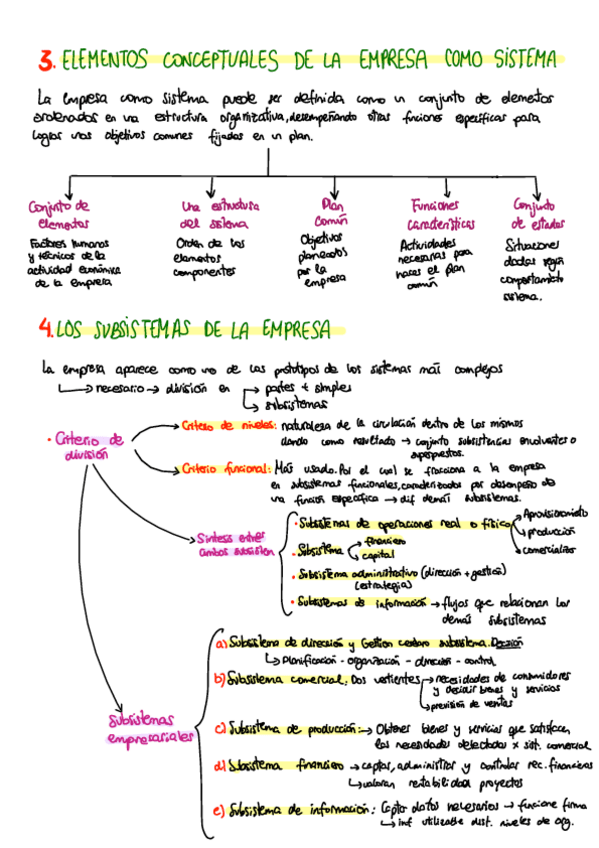 3. ELEMENTOS CONCEPTUALES DE LA EMPRESA COMO SISTEMA
La empresa como sistema puede ser definida como un conjunto de elementos
ordenados en una estructura organizativa, desempeñando otras funciones específicas para
lograr unos objetivos comunes fijados en un plan.
Conjunto de
elementos
Factores humanos
y técnicos de la
actividad económica
de la empresa
Una estructura
del sistema
Orden de los
elementos
componentes
Plan
común
Objetivos
planeados
por la
empresa
Funciones
características
Actividades
necesarias para
hacer el plan
común
Conjunto
de estados
Situaciones
dadas según
comportamiento
sistema.
4. LOS SUBSISTEMAS DE LA EMPRESA
La empresa aparece como uno de los prototipos de los sistemas más complejos
→ necesario → división en → partes + simples
→ subsistemas
• Criterio de
división
→ Criterio de niveles: naturaleza de la circulación dentro de los mismos
dando como resultado → conjunto subsistencias envolventes o
superpuestos.
→ Criterio funcional: Más usado. Por el cual se fracciona a la empresa
en subsistemas funcionales, caracterizados por desempeño de
una función específica → dif demás subsistemas.
Síntesis entre
ambos subsisten
• Subsistemas de operaciones real o físico
→ Aprovisionamiento
→ producción
→ comercializ
• Subsistema
financiero
capital
• Subsistema administrativo (dirección + gestión)
(estrategia)
• Subsistemas de información → flujos que relacionan los
demás subsistemas
Subsistemas
empresariales
a) Subsistema de dirección y Gestión cerebro subsistema. Decisión
→ Planificación - organización - dirección - control
b) Subsistema comercial: Dos vertientes → necesidades de consumidores
y decidir bienes y servicios
→ previsión de ventas
c) Subsistema de producción: → Obtener bienes y servicios que satisfacen
las necesidades detectadas x sist. comercial
d) Subsistema financiero → captar, administrar y controlar rec. financieros
→ valoran rentabilidad proyectos
e) Subsistema de información: Captar datos necesarios → funcione firma
→ inf utilizable dist. niveles de org.